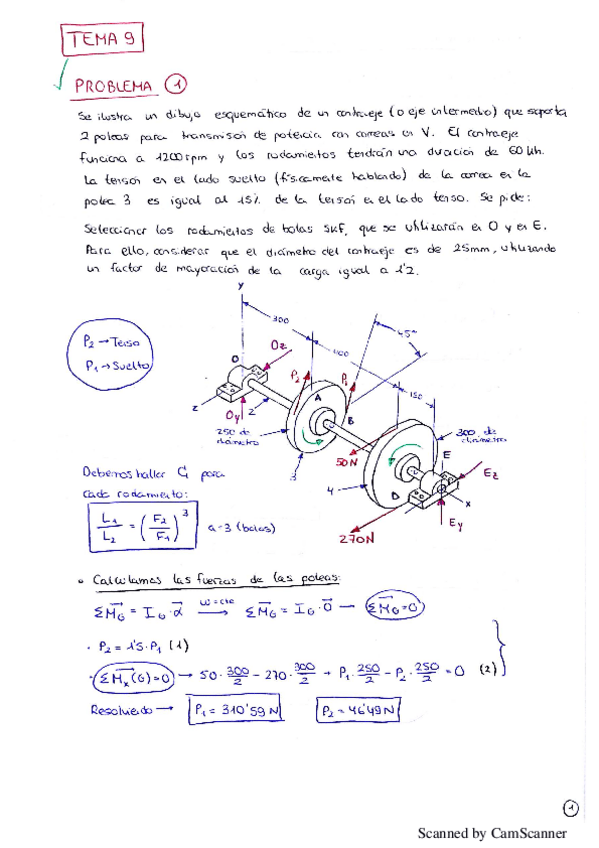 TEMA 9
PROBLEMA 1
Se ilustra un dibujo esquemático de un contraeje (o eje intermedio) que soporta
2 poleas para transmisión de potencia con correas en V. El contraeje
funciona a 1200 rpm y los rodamientos tendrán una duración de 60 kh.
La tensión en el lado suelto (físicamente hablando) de la correa en la
polea 3 es igual al 15% de la tensión en el lado tenso. Se pide:
Seleccionar los rodamientos de bolas SKF, que se utilizarán en O y en E.
Para ello, considerar que el diámetro del contraeje es de 25mm, utilizando
un factor de mayoración de la carga igual a 1'2.
y
300
400
45°
P2 → Tenso
P1 → Suelto
O
Oz
P2
P1
150
z
Oy
2
A
B
250 de
diámetro
300 de
diámetro
50N
E
Ez
3
4
D
x
Ey
270N
Debemos hallar C1 para
cada rodamiento:
L1/L2 = (F2/F1)^3 a=3 (bolas)
• Calculamos las fuerzas de las poleas:
ΣMG = IG·α ω=cte → ΣMG = IG·0 → ΣMG=0
· P2 = 1'5·P1 (1)
· ΣMx(G)=0 → 50·300/2 - 270·300/2 + P1·250/2 - P2·250/2 = 0 (2)
Resolviendo → P1 = 310'59 N P2 = 46'49 N
1
Scanned by CamScanner